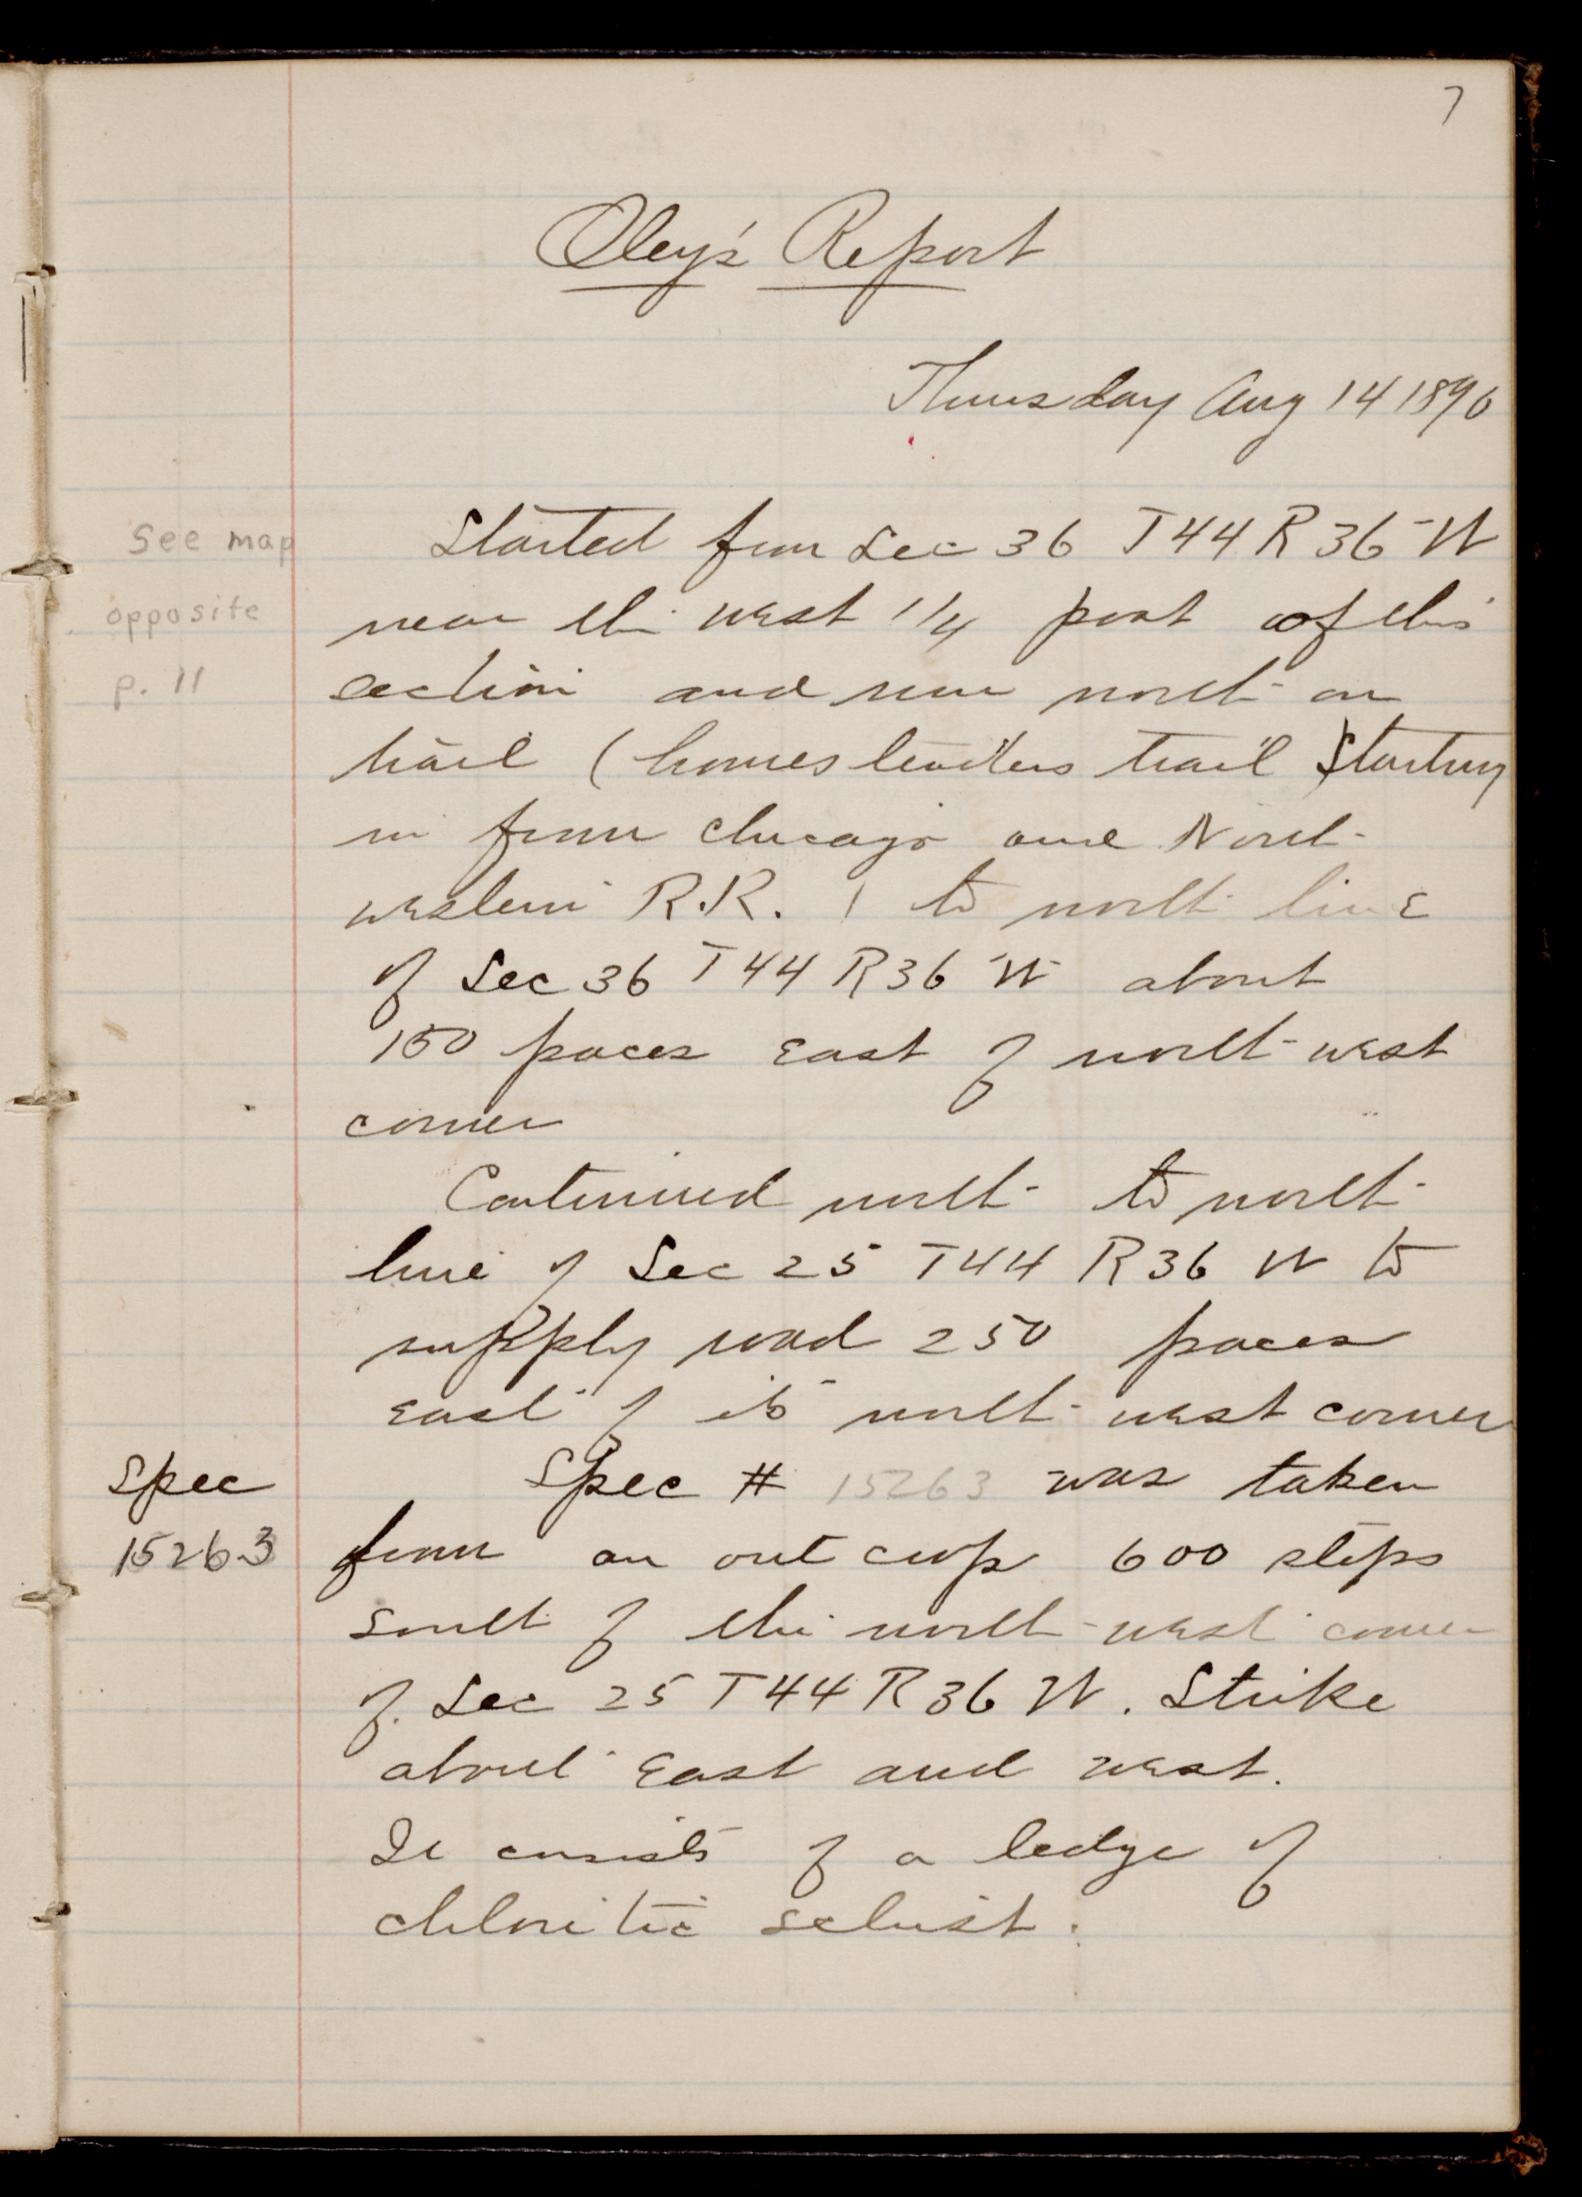 7
Oley's Report
Thursday Aug 14 1890
See map
opposite
p. 11
Started from Sec 36 T44 R36 W
near the west 1/4 post of this
section and run north on
trail (homesteaders trail starting
in from Chicago and North
western R.R. ) to north line
of Sec 36 T44 R36 W about
150 paces east of north-west
corner
Continued north to north
line of Sec 25 T44 R36 W to
supply road 250 paces
east of its north-west corner
Spec
15263
Spec # 15263 was taken
from an out crop 600 steps
south of the north-west corner
of Sec 25 T44 R36 W. Strike
about East and west.
It consists of a ledge of
chloritic schist.